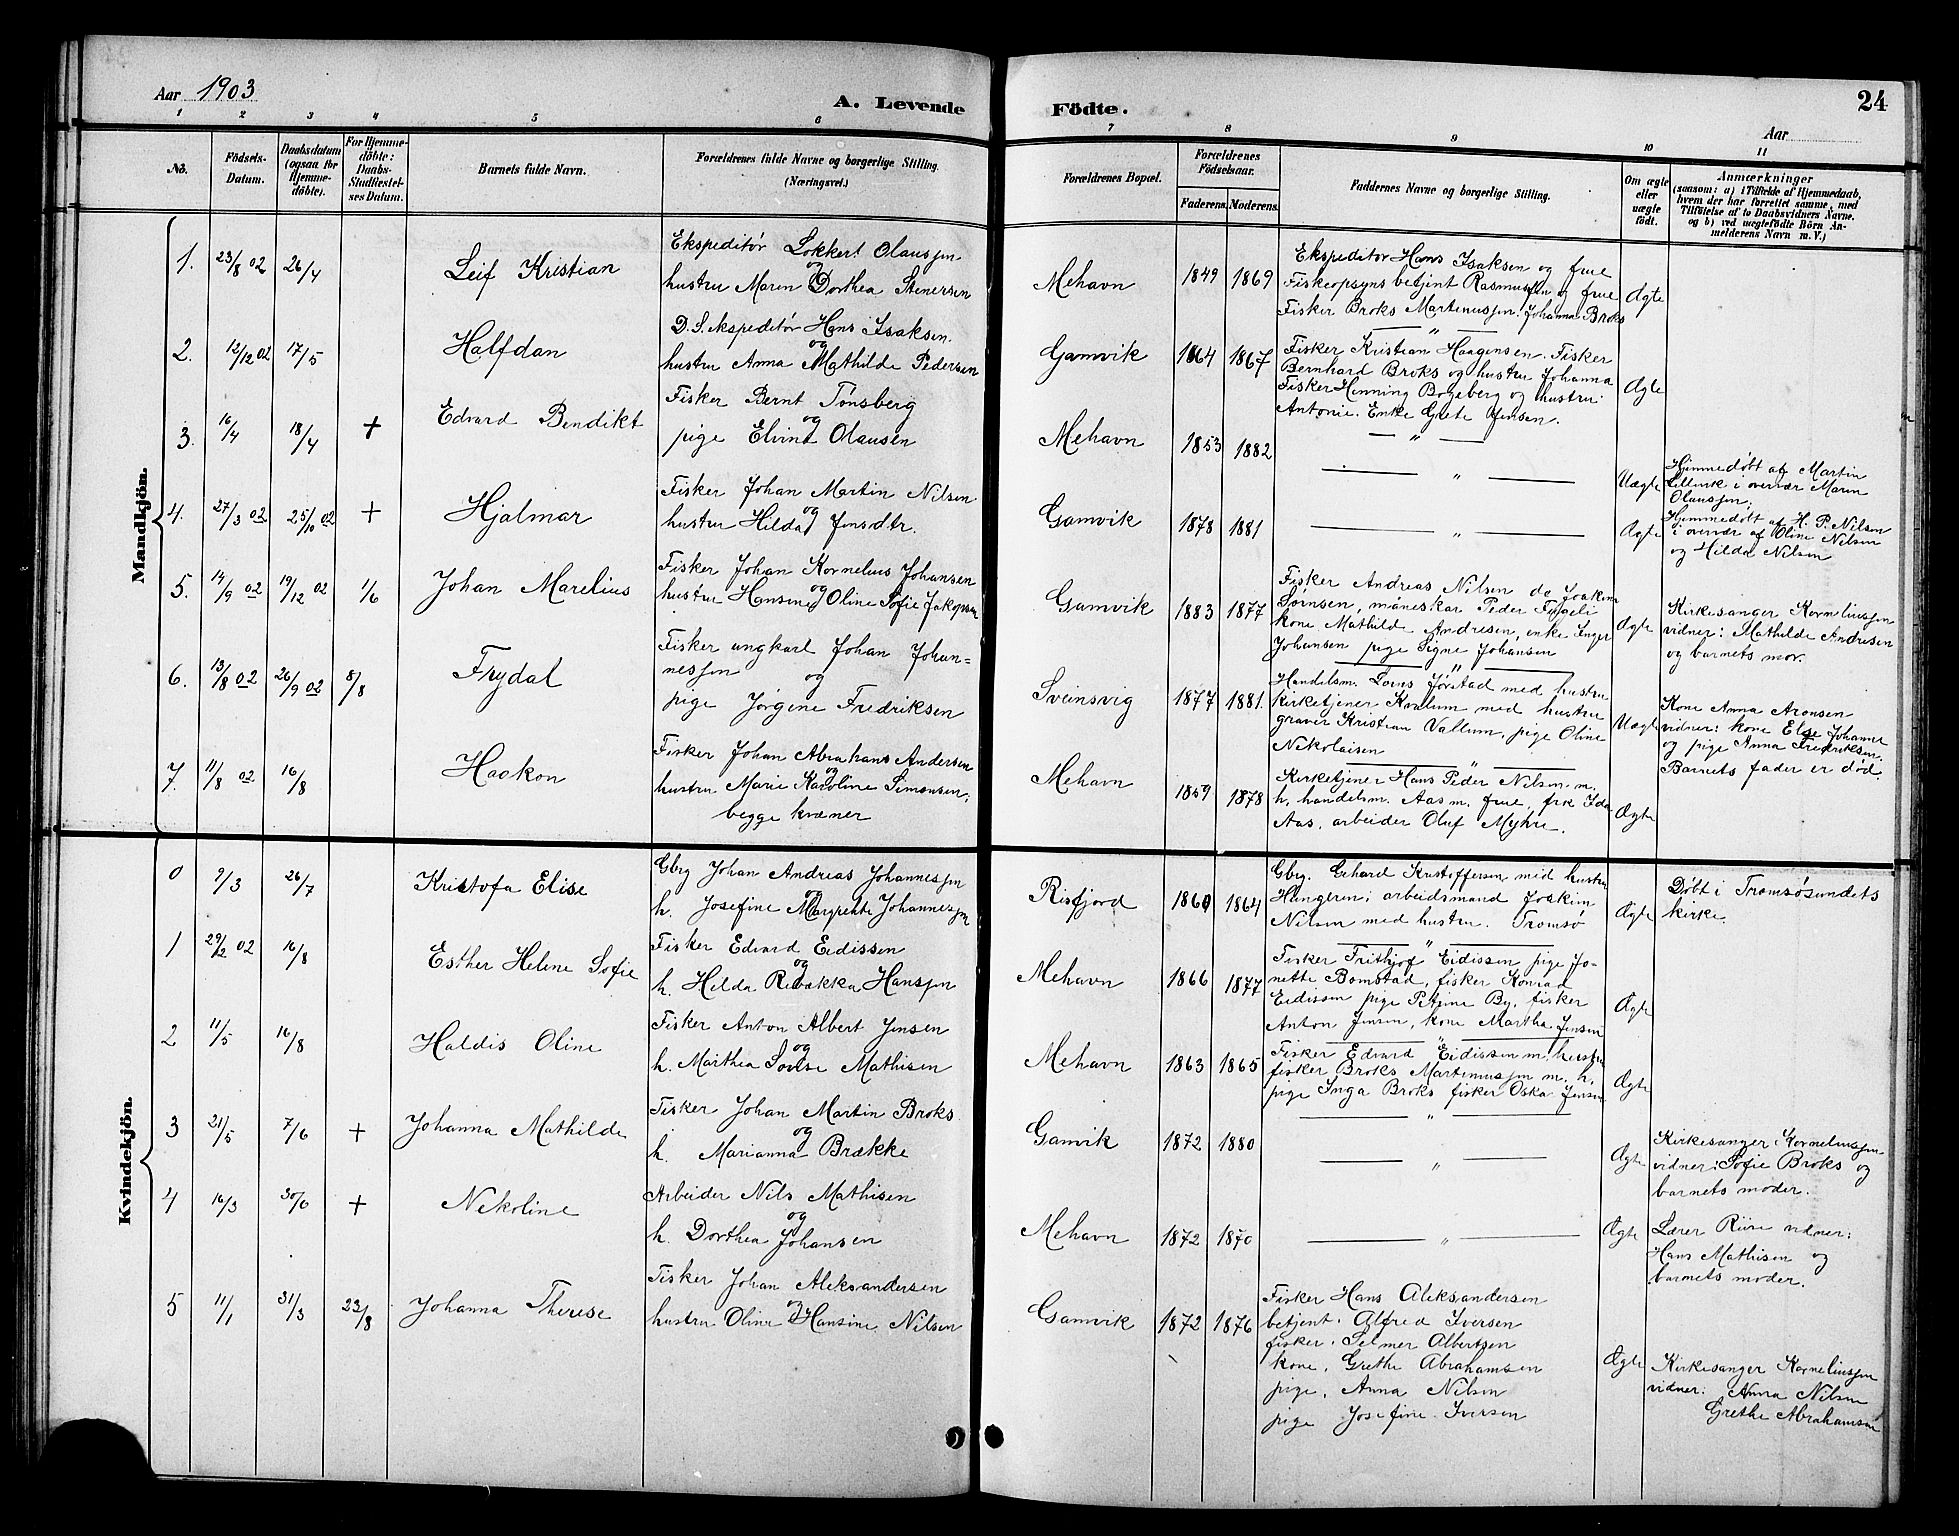 Aar 1903
A. Levende
Födte.
24
Aar
1 2 3 4 5 6 7 8 9 10 11
No.
Födsels-
Datum.
Daabsdatum
(ogsaa for
Hjemme-
döbte).
For Hjemme-
döbte:
Daabs-
Stadfæstel-
ses Datum.
Barnets fulde Navn.
Forældrenes fulde Navne og borgerlige Stilling.
(Næringsvei.)
Forældrenes Bopæl.
Forældrenes
Födselsaar.
Faderens. Moderens.
Faddernes Navne og borgerlige Stilling.
Om ægte
eller
uægte
født.
Anmærkninger
(saasom: a) i Tilfælde af Hjemmedaab,
hvem der har forrettet samme, med
Tilföielse af to Daabsvidners Navne.
og b) ved uægtefödte Börn An-
melderens Navn m. V.)
Mandkjön.
1. 23/8 02 26/4 Leif Kristian
Ekspeditør Lokkert Olaussen
og
hustru Maren Dorthea Stenersen
Mehavn 1849 1869
Ekspeditør Hans Isaksen og frue
Fiskeopsyns betjent Rasmussen og frue
Fisker Broks Martinussen. Johanna Broks
Ægte
2. 12/12 02 17/5 Halfdan
D.S. ekspeditør Hans Isaksen.
og
hustru Anna Mathilde Pedersen
Gamvik 1864 1867
Fisker Kristian Haagensen. Fisker
Bernhard Broks og hustru Johanna
Fisker Henning Bogeberg og hustru
Antonie. Enke Grete Jensen.
Ægte
3. 16/4 18/4 + Edvard Bendikt
Fisker Bernt Tønsberg
og
pige Elvine Olausen
Mehavn 1853 1882
— „ —
Uægte
Hjemmedøbt af Martin
i overvær Maren
Olaussen.
4. 27/3 02 25/10 02 + Hjalmar
Fisker Johan Martin Nilsen
og
hustru Hilda Jensdtr.
Gamvik 1878 1881
— „ —
Ægte
Hjemmedøbt af H. P. Nilsen
i overvær af Oline Nilsen
og Hilda Nilsen
5. 14/9 02 19/12 02 1/6 Johan Marelius
Fisker Johan Kornelius Johansen
og
hustru Hansine Oline Sofie Jakopsen
Gamvik 1883 1877
Fisker Andreas Nilsen do Joakim
Sørnsen, Peder
kone Mathilde Andresen, enke Inger
Johansen pige Signe Johansen
Ægte
Kirkesanger Korneliussen
vidner: Mathilde Andresen
og barnets mor.
6. 13/8 02 26/9 02 8/8 Frydal
Fisker ungkarl Johan Johan-
nessen
og
pige Jørgine Fredriksen
Sveinsvig 1877 1881.
Handelsm. Lorns Jørstad med hustru
kirketjener Kvalum med hustru
graver Kristian Vallum, pige Oline
Nikolaisen
Uægte
Kone Anna Aronsen
vidner: kone Else Johanne
og pige Anna Fredriksen.
Barnets fader er død.
7. 11/8 02 16/8 Haakon
Fisker Johan Abrahams Andersen
og
hustru Marie Karoline Simonsen,
begge kvæner
Mehavn 1859 1878
Kirketjener Hans Peder Nilsen m.
h. handelsm. Aas m. frue, frk Ida
Aas, arbeider Oluf Myhre.
Ægte
Kvindekjön.
0 9/3 26/7 Kristofa Elise
Gbrg Johan Andreas Johannessen
og
h. Josefine Margrethe Johannessen
Risfjord 1860 1864
Gbrg. Gehard Kristoffersen med hustru
Hungeren; arbeidsmand Joakim
Nilsen med hustru. Tromsø
Ægte
Døbt i Tromsøsundets
kirke.
1 29/2 02 16/8 Esther Helene Sofie
Fisker Edvard Eidissen
og
h. Hilda Rebækka Hanssen
Mehavn 1866 1877
Fisker Frithjof Eidissen pige Jo-
nette Bomstad, fisker Konrad
Eidissen pige Petrine By, fisker
Anton Jensen, kone Martha Jensen
Ægte
2 11/5 16/8 Haldis Oline
Fisker Anton Albert Jensen
og
h. Marthea Lovise Mathisen
Mehavn 1863 1865
Fisker Edvard Eidissen m. hustru
fisker Broks Martinussen m. h.
pige Inga Broks fisker Oska Jensen
Ægte
3 21/5 7/6 + Johanna Mathilde
Fisker Johan Martin Broks
og
h. Marianna Brække
Gamvik 1872 1880
— „ —
Ægte
Kirkesanger Korneliussen
vidner: Sofie Broks og
barnets moder.
4 16/3 30/6 + Nekoline
Arbeider Nils Mathisen
og
h. Dorthea Johansen
Mehavn 1872 1870
— „ —
Ægte
Lærer Riise vidner:
Hans Mathisen og
barnets moder.
5 11/1 31/3 23/8 Johanna Therese
Fisker Johan Aleksandersen
og
hustru Oline Hansine Nilsen
Gamvik 1872 1876
Fisker Hans Aleksandersen
betjent. Alfred Iversen
fisker. Selmer Albertsen
kone. Grethe Abrahamsen
pige. Anna Nilsen
pige Josefine Iversen
Ægte
Kirkesanger Korneliussen
vidner: Anna Nilsen
Grethe Abrahamsen